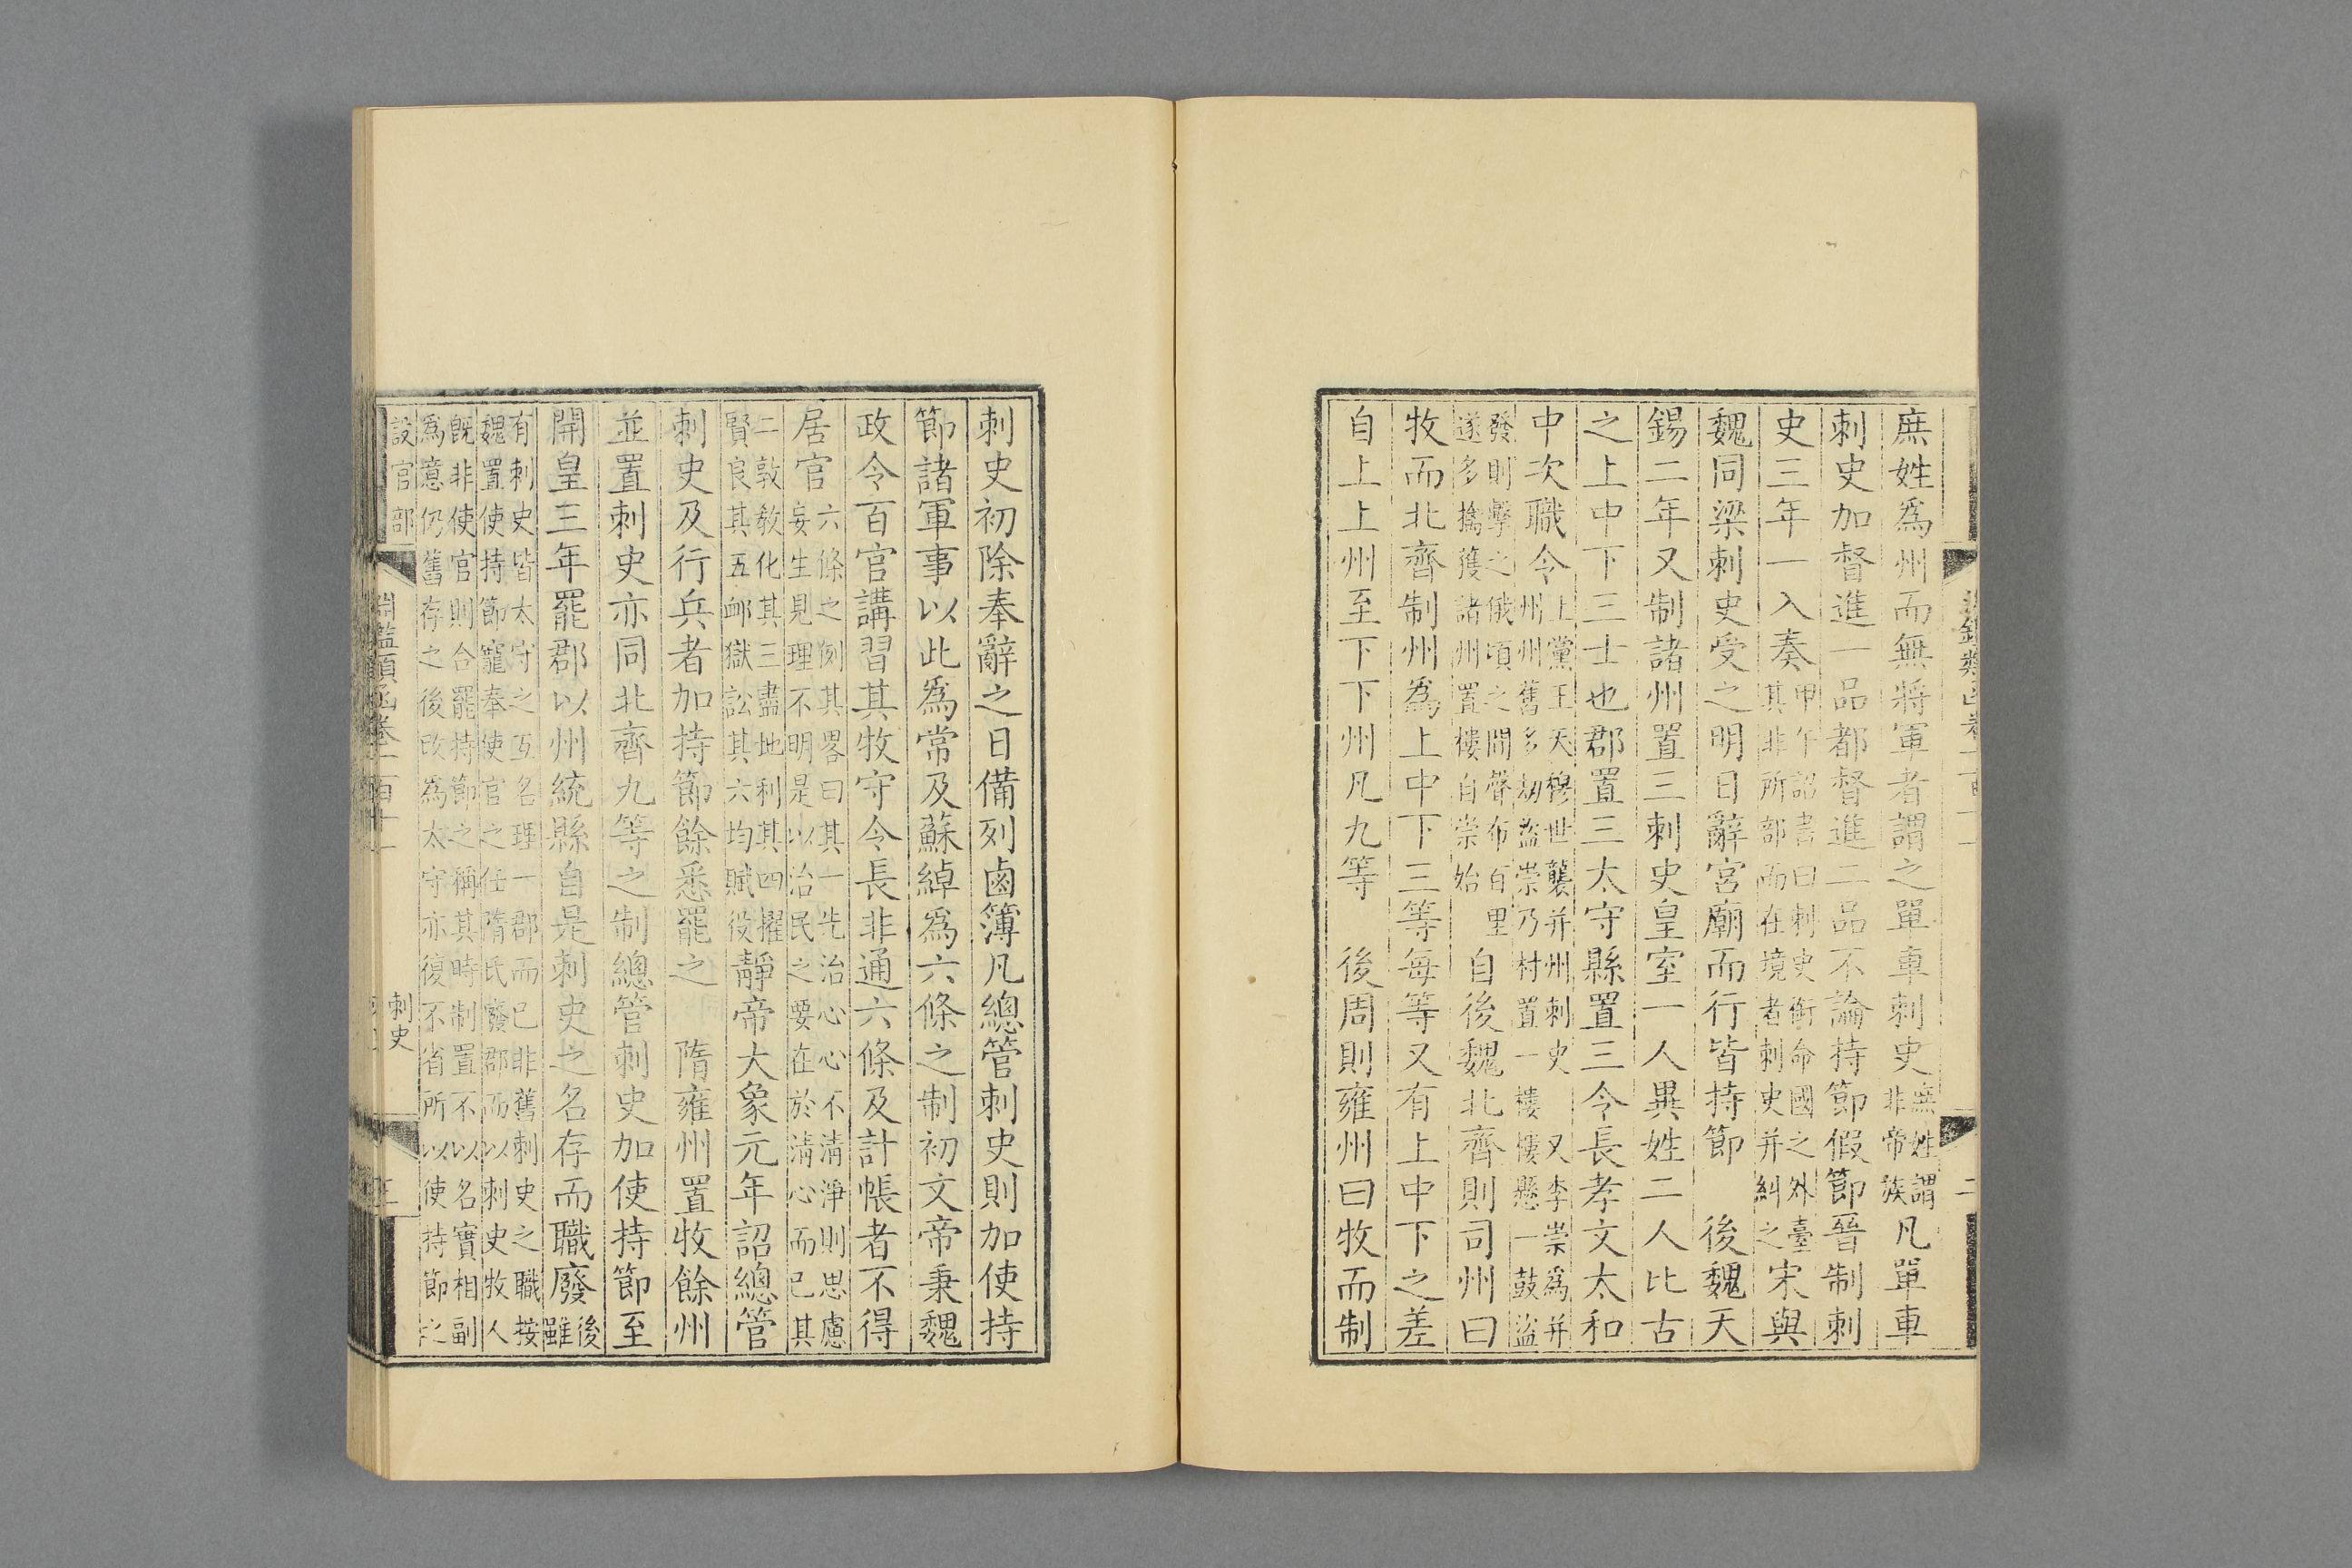 庶姓爲州而無將軍者謂之單車刺史庶姓謂非帝族凡單車
刺史加督進一品都督進二品不論持節假節晉制刺
史三年一入奏甲午詔書曰刺史銜命國之外臺其非所部而在境者刺史并糾之宋與
魏同梁刺史受之明日辭宮廟而行皆持節 後魏天
錫二年又制諸州置三刺史皇室一人異姓二人比古
之上中下三士也郡置三太守縣置三令長孝文太和
中次職令上黨王天穆世襲并州刺史 又李崇爲并州州舊多劫盜崇乃村置一樓樓懸一鼓盜
發則擊之俄頃之間聲布百里遂多擒獲諸州置樓自崇始 自後魏北齊則司州曰
牧而北齊制州爲上中下三等每等又有上中下之差
自上上州至下下州凡九等 後周則雍州曰牧而制
刺史初除奉辭之日備列鹵簿凡總管刺史則加使持
節諸軍事以此爲常及蘇綽爲六條之制初文帝秉魏
政令百官講習其牧守令長非通六條及計帳者不得
居官六條之例其畧曰其一先治心心不清淨則思慮妄生見理不明是以治民之要在於清心而已其
二敦敎化其三盡地利其四擢賢良其五卹獄訟其六均賦役靜帝大象元年詔總管
刺史及行兵者加持節餘悉罷之 隋雍州置牧餘州
並置刺史亦同北齊九等之制總管刺史加使持節至
開皇三年罷郡以州統縣自是刺史之名存而職廢後雖
有刺史皆太守之互名理一郡而已非舊刺史之職按魏置使持節寵奉使官之任隋氏廢郡而以刺史牧人
旣非使官則合罷持節之稱其時制置不以名實相副爲意仍舊存之後改爲太守亦復不省所以使持節之
設官部
淵鑑類函卷一百十一
刺史
三